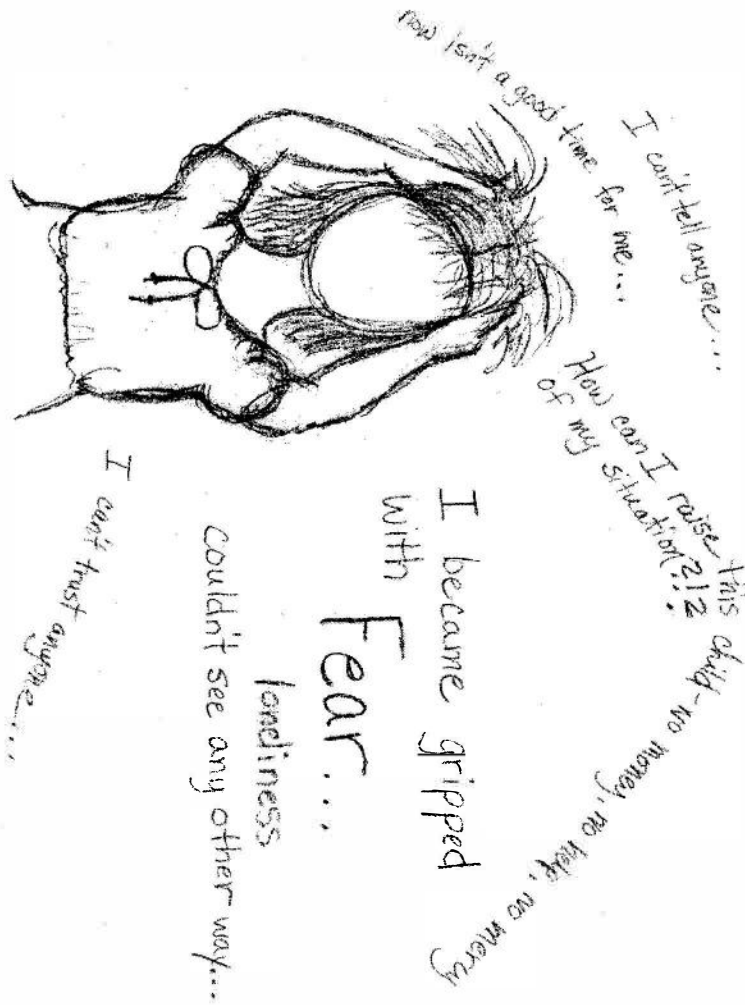 I can't tell anyone...
now isn't a good time for me...
How can I raise this child - no money, no help, no mercy
of my situation?!?
I became gripped
with
Fear...
loneliness
couldn't see any other way....
I can't trust anyone.....